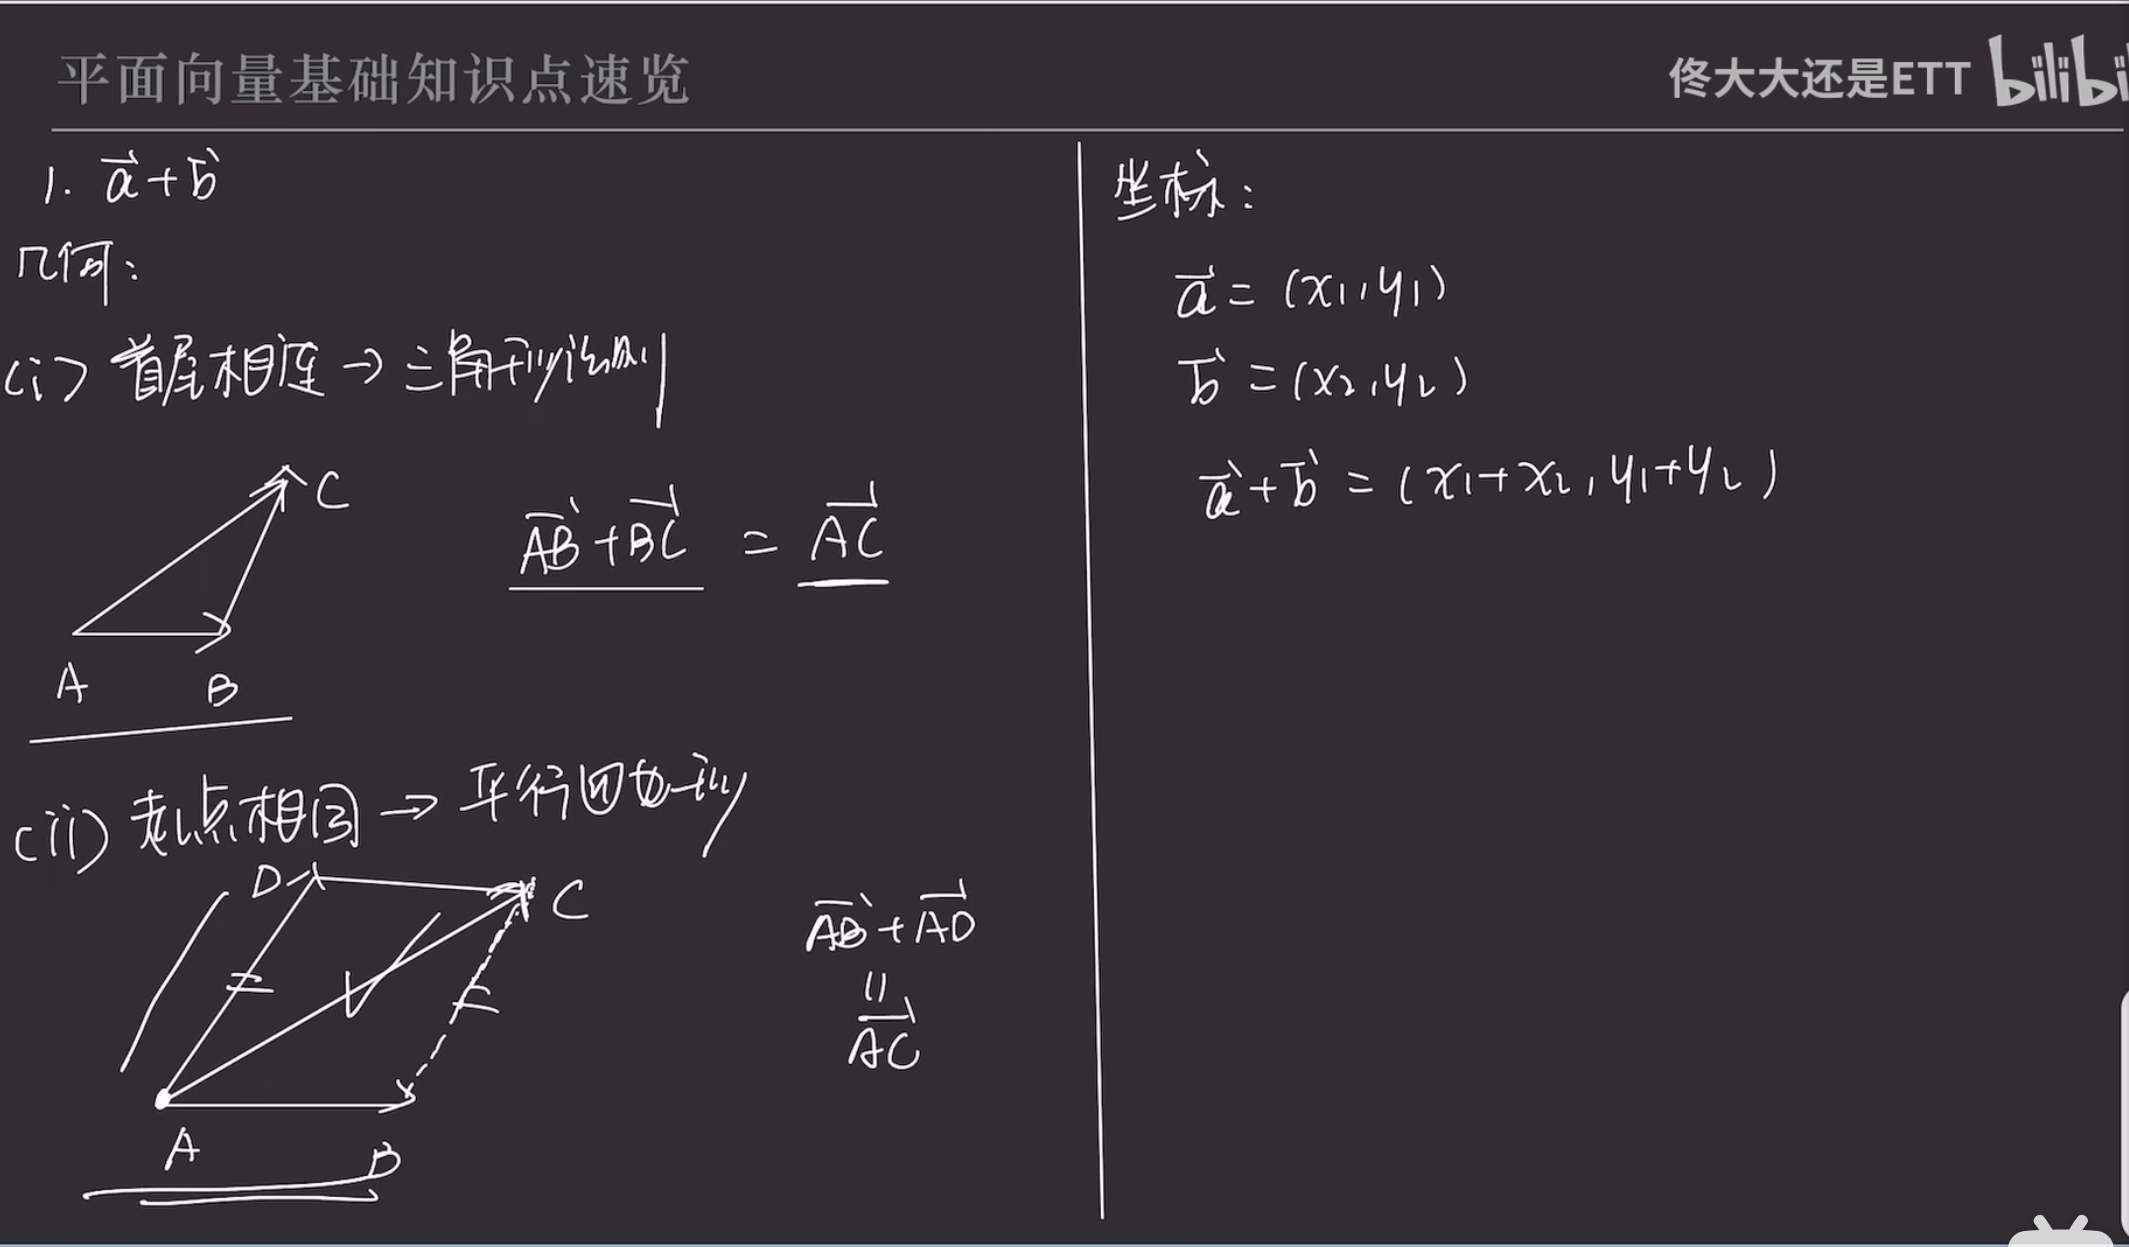 平面向量基础知识点速览
佟大大还是ETT bilibi
1. a⃗+b⃗
几何:
(i) 首尾相连→三角形法则
C
A B
A⃗B⃗+B⃗C⃗ = A⃗C⃗
(ii) 起点相同→平行四边形
D C
A B
A⃗B⃗+A⃗D⃗
=
A⃗C⃗
坐标:
a⃗=(x₁,y₁)
b⃗=(x₂,y₂)
a⃗+b⃗=(x₁+x₂,y₁+y₂)